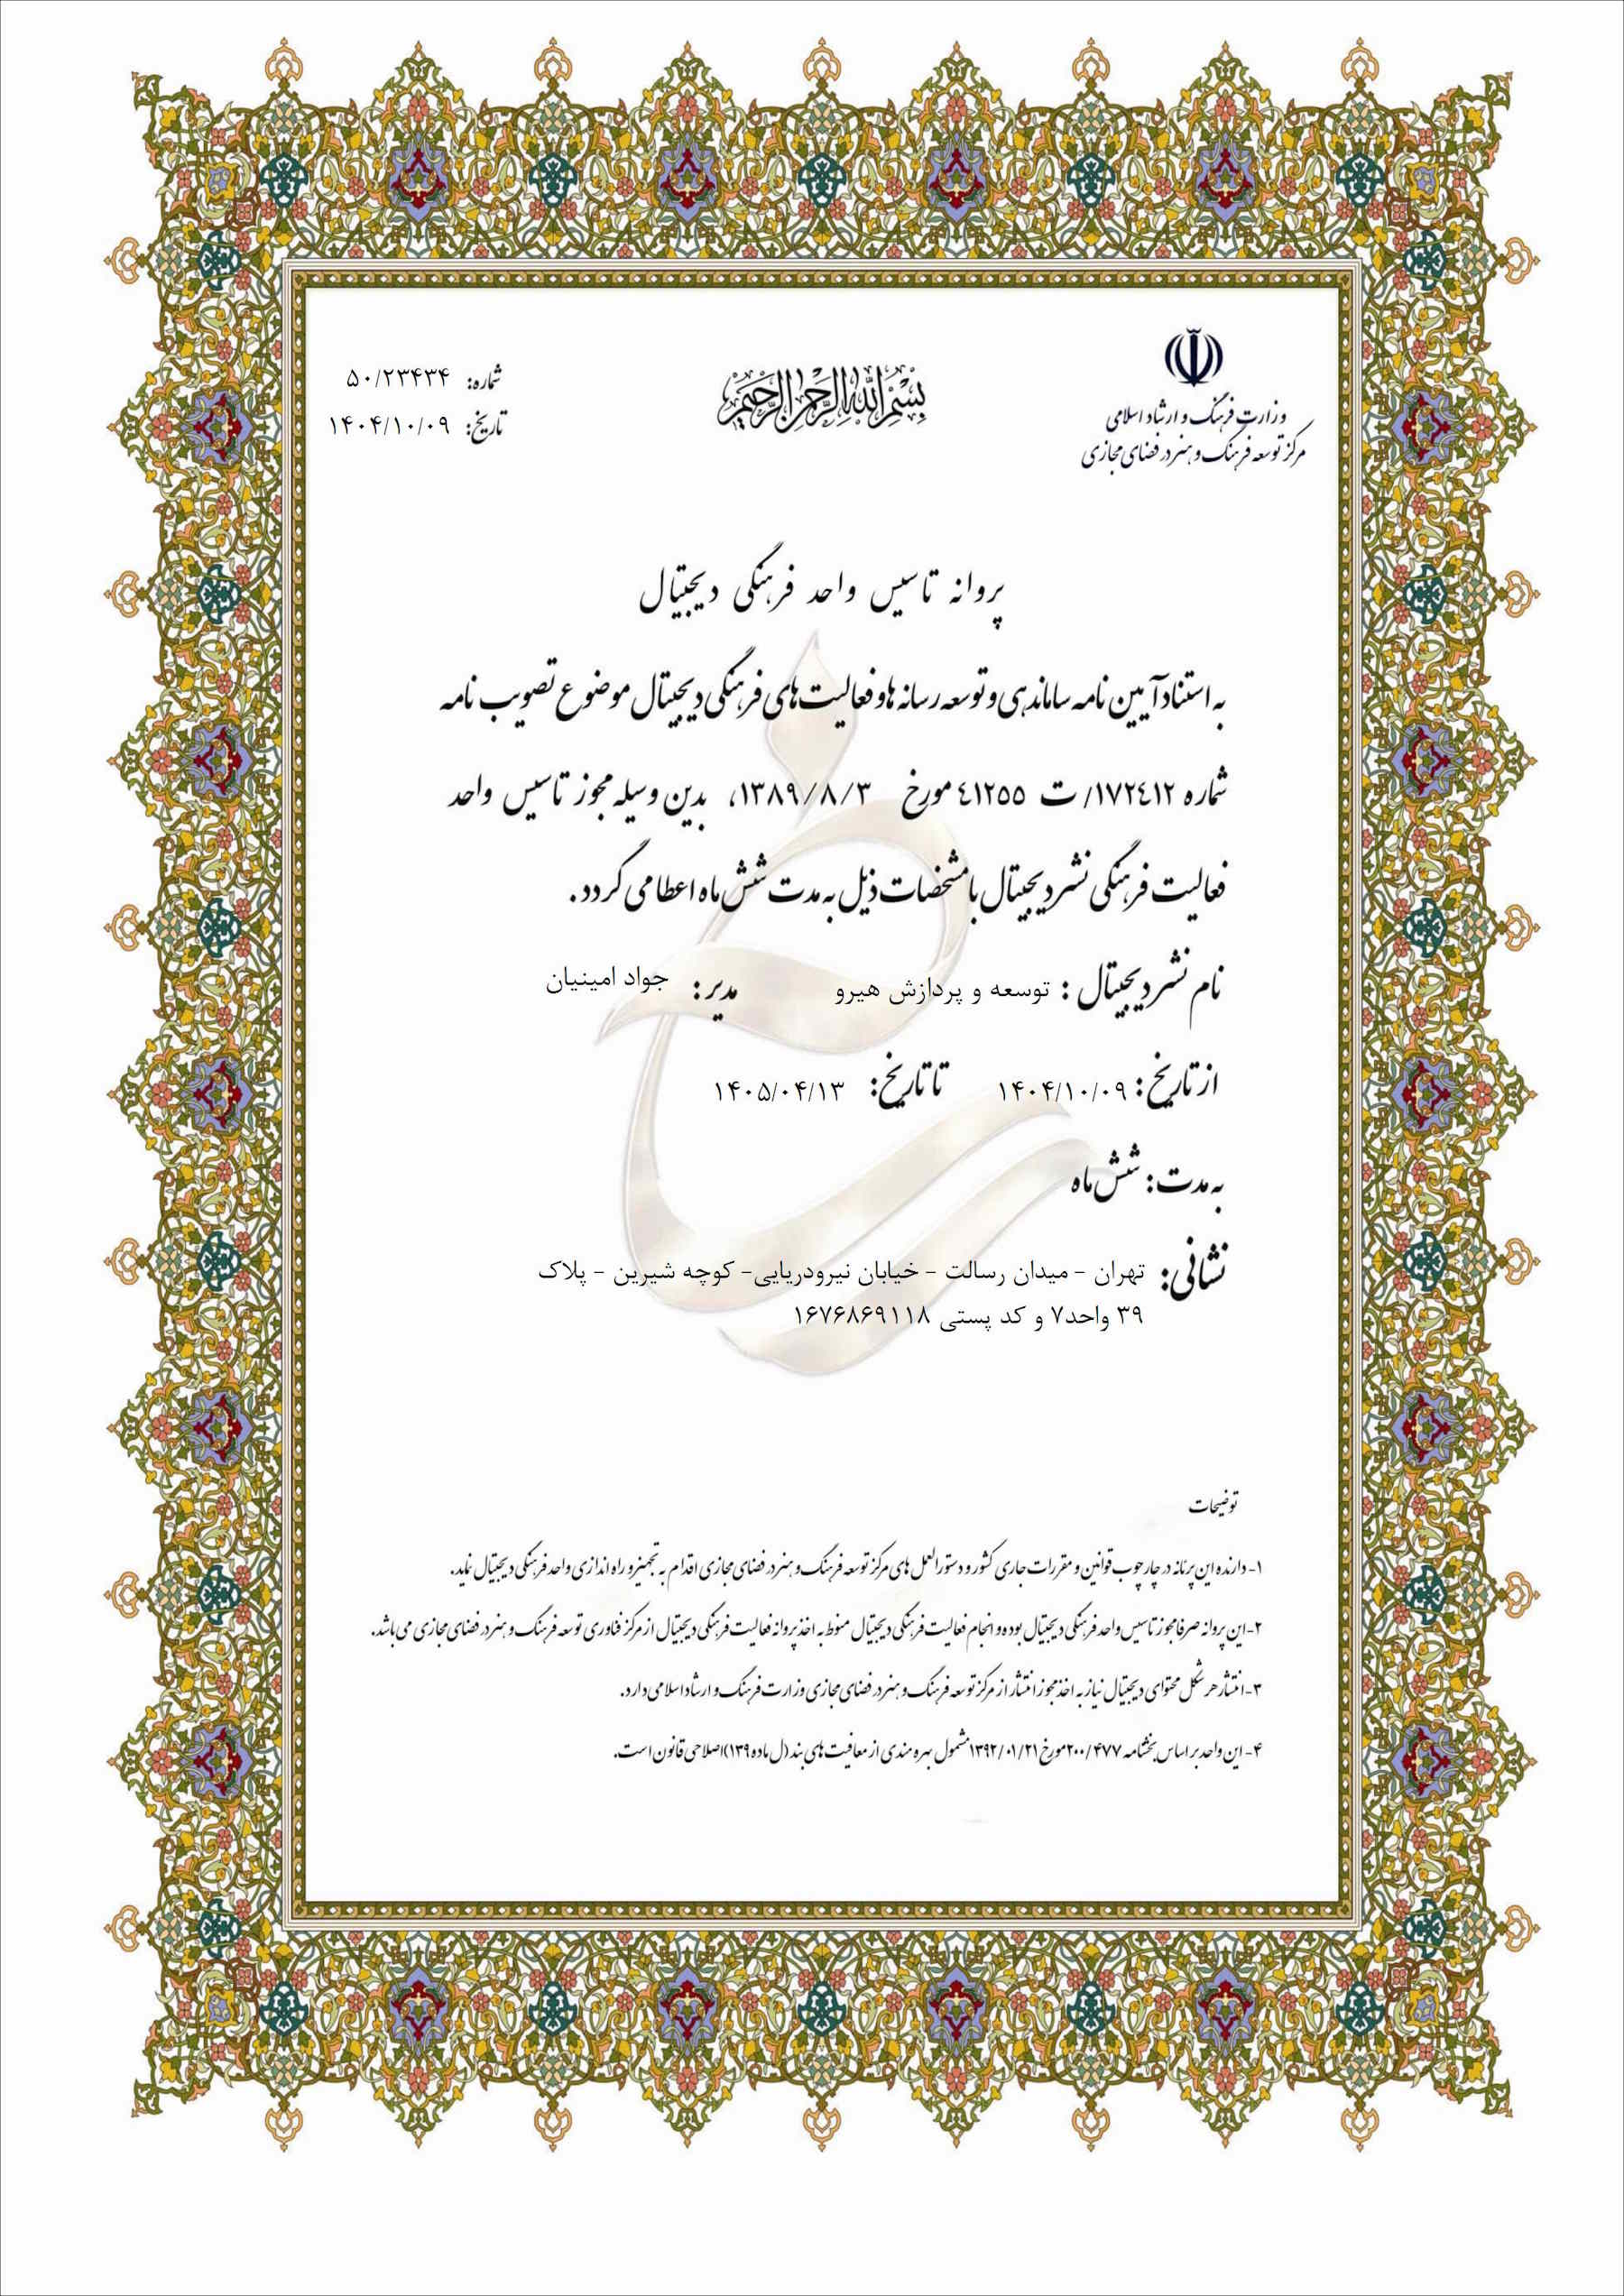 بسم الله الرحمن الرحیم
وزارت فرهنگ و ارشاد اسلامی
مرکز توسعه فرهنگ و هنر در فضای مجازی
شماره: ۵۰/۲۳۴۳۴
تاریخ: ۱۴۰۴/۱۰/۰۹
پروانه تاسیس واحد فرهنگی دیجیتال
به استناد آیین نامه ساماندهی و توسعه رسانه ها و فعالیت های فرهنگی دیجیتال موضوع تصویب نامه
شماره ۱۷۲٤۱۲/ ت ٤۱۲٥٥ مورخ ۱۳۸۹/۸/۳، بدین وسیله مجوز تاسیس واحد
فعالیت فرهنگی نشر دیجیتال با مشخصات ذیل به مدت شش ماه اعطا می گردد.
نام نشر دیجیتال : توسعه و پردازش هیرو مدیر: جواد امینیان
از تاریخ: ۱۴۰۴/۱۰/۰۹ تا تاریخ: ۱۴۰۵/۰۴/۱۳
به مدت: شش ماه
نشانی: تهران - میدان رسالت - خیابان نیرودریایی- کوچه شیرین - پلاک
۳۹ واحد۷ و کد پستی ۱۶۷۶۸۶۹۱۱۸
توضیحات
۱- دارنده این پرنانه در چارچوب قوانین و مقررات جاری کشور و دستورالعمل های مرکز توسعه فرهنگ و هنر در فضای مجازی اقدام به تجهیز و راه اندازی واحد فرهنگی دیجیتال نماید.
۲- این پروانه صرفا مجوز تاسیس واحد فرهنگی دیجیتال بوده و انجام فعالیت فرهنگی دیجیتال منوط به اخذ پروانه فعالیت فرهنگی دیجیتال از مرکز فناوری توسعه فرهنگ و هنر در فضای مجازی می باشد.
۳- انتشار هر شکل محتوای دیجیتال نیاز به اخذ مجوز انتشار از مرکز توسعه فرهنگ و هنر در فضای مجازی وزارت فرهنگ و ارشاد اسلامی دارد.
۴- این واحد بر اساس بخشنامه ۲۰۰/۴۷۷ مورخ ۱۳۹۲/۰۱/۲۱ مشمول بهره مندی از معافیت های بند (ل ماده ۱۳۹) اصلاحی قانون است.